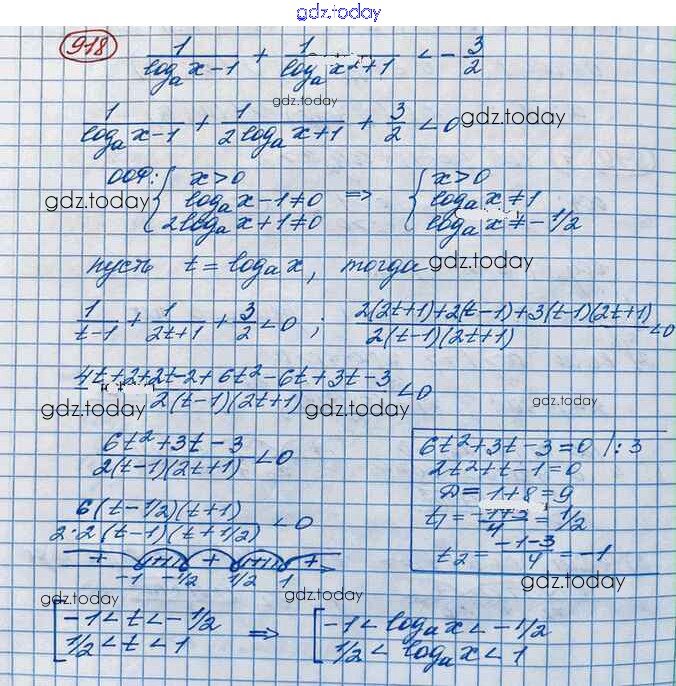 gdz.today
918
1/(log_a x-1) + 1/(log_a x²+1) < -3/2
gdz.today
1/(log_a x-1) + 1/(2log_a x+1) + 3/2 < 0 gdz.today
ООФ: { x>0 { x>0
gdz.today log_a x-1≠0 => log_a x≠1
2log_a x+1≠0 log_a x≠-1/2
пусть t=log_a x, тогда gdz.today
1/(t-1) + 1/(2t+1) + 3/2 < 0 ; (2(2t+1)+2(t-1)+3(t-1)(2t+1))/(2(t-1)(2t+1)) < 0
(4t+2+2t-2+6t²-6t+3t-3)/(2(t-1)(2t+1)) < 0
gdz.today gdz.today gdz.today
(6t²+3t-3)/(2(t-1)(2t+1)) < 0
6t²+3t-3=0 |:3
2t²+t-1=0
D=1+8=9
t₁=(-1+3)/4=1/2
t₂=(-1-3)/4=-1
gdz.today
6(t-1/2)(t+1)/(2·2(t-1)(t+1/2)) < 0
+ + +
-1 -1/2 1/2 1
gdz.today gdz.today
[ -1<t<-1/2 => [ -1<log_a x<-1/2
1/2<t<1 1/2<log_a x<1
gdz.today